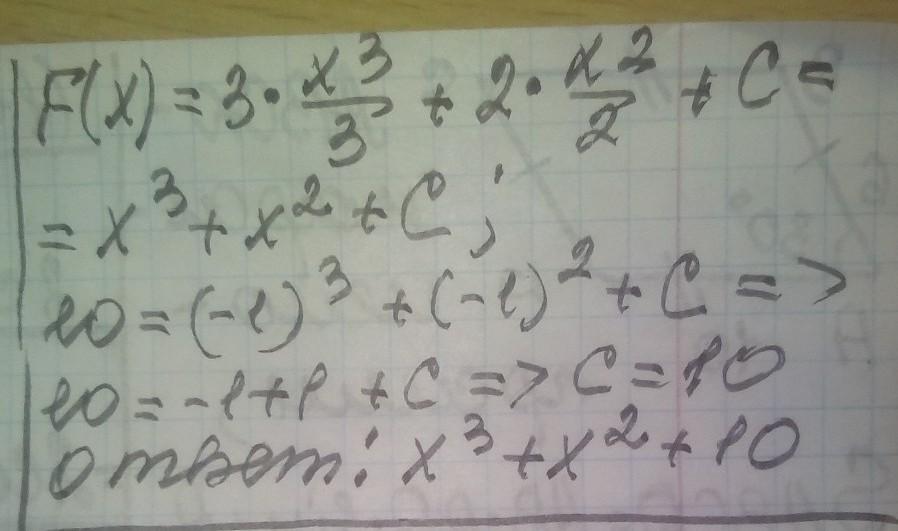 F(x) = 3 · x³/3 + 2 · x²/2 + C =
= x³ + x² + C ;
10 = (-1)³ + (-1)² + C =>
10 = -1 + 1 + C => C = 10
Ответ: x³ + x² + 10